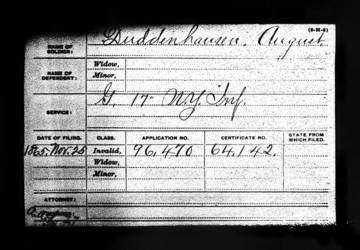 NAME OF SOLDIER: Duddenhausen, August.
NAME OF DEPENDENT: Widow,
Minor,
SERVICE: G. 17" N.Y. Inf.
DATE OF FILING. CLASS. APPLICATION NO. CERTIFICATE NO. STATE FROM WHICH FILED.
1865. Nov. 25 Invalid, 96,470 64,142.
Widow,
Minor,
ATTORNEY: